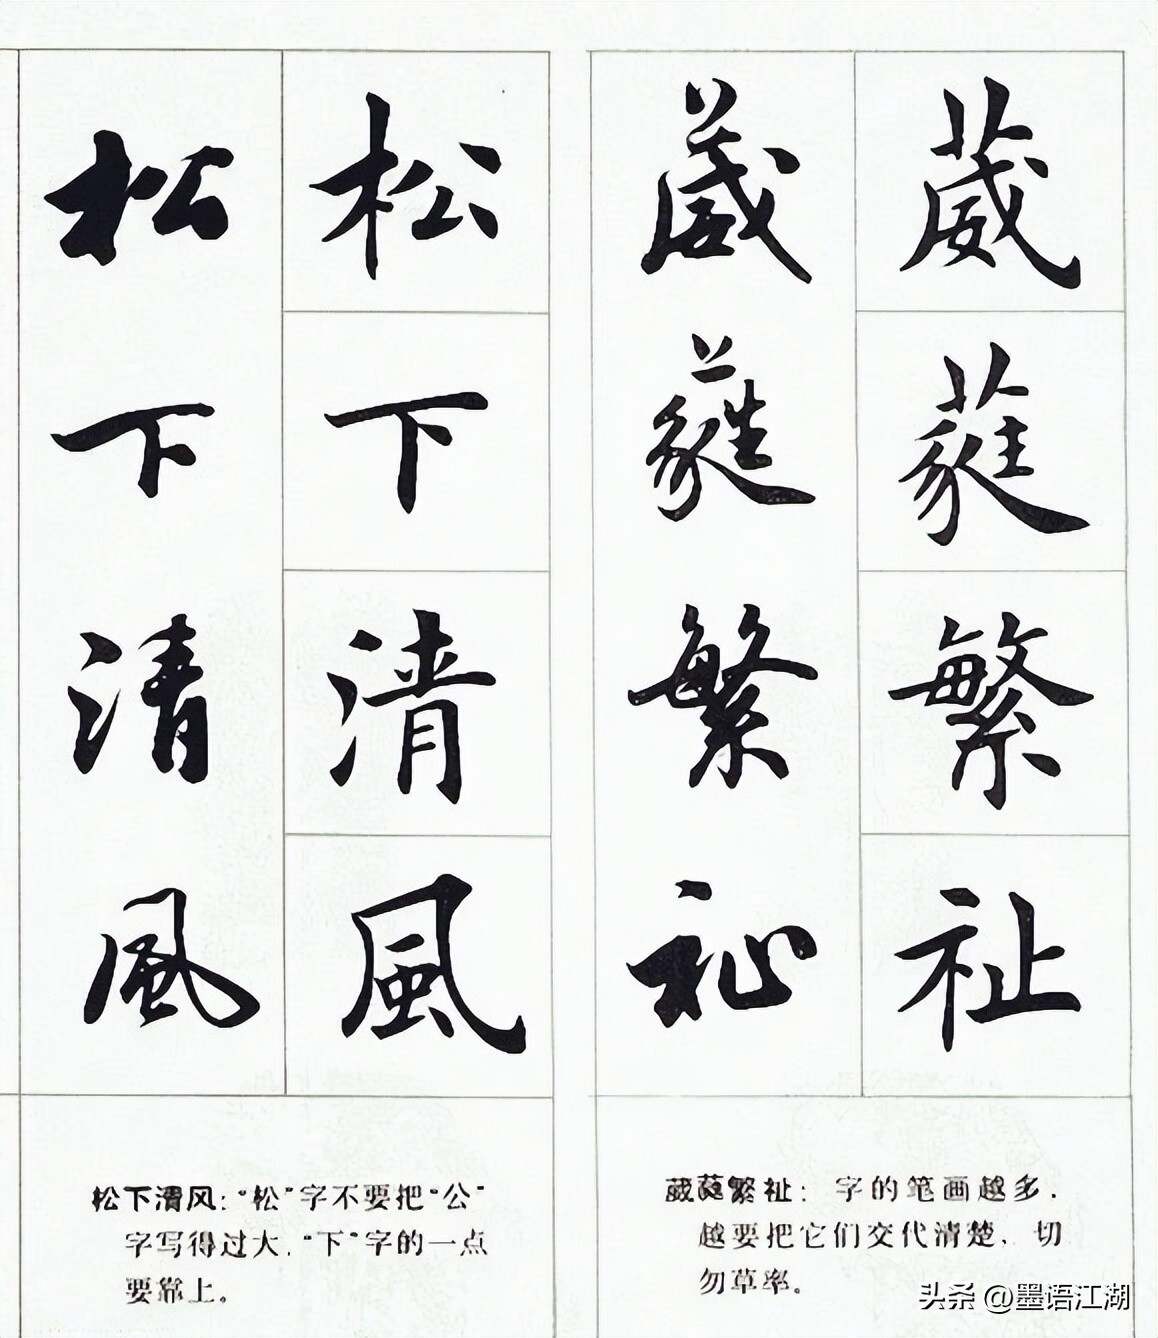 葳蕤繁祉
葳蕤繁祉
松下清風
松下清風
松下清风：“松”字不要把“公”
字写得过大，“下”字的一点
要靠上。
葳蕤繁祉：字的笔画越多，
越要把它们交代清楚，切
勿草率。
头条 @墨语江湖